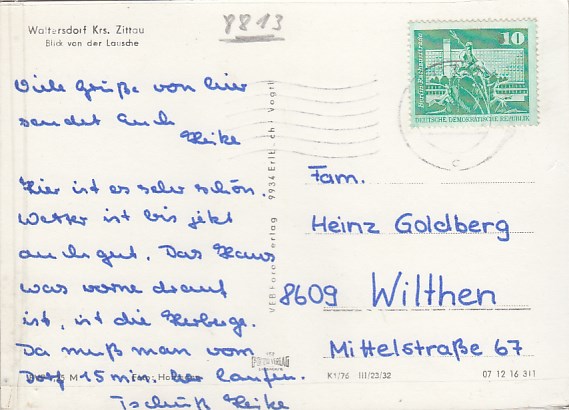 8813
Waltersdorf Krs. Zittau
Blick von der Lausche
Viele Grüße von hier
sendet Euch
Heike
Hier ist es sehr schön.
Wetter ist bis jetzt
auch gut. Das Haus
was vorne drauf
ist, ist die Herberge.
Da muß man vom
Dorf 15 min her laufen.
Tschüß Heike
M
Foto:
VEB Foto-Verlag
9934 Erlb.
Vogtl
10
DEUTSCHE DEMOKRATISCHE REPUBLIK
Fam.
Heinz Goldberg
8609 Wilthen
Mittelstraße 67
K1/76 III/23/32
07 12 16 311